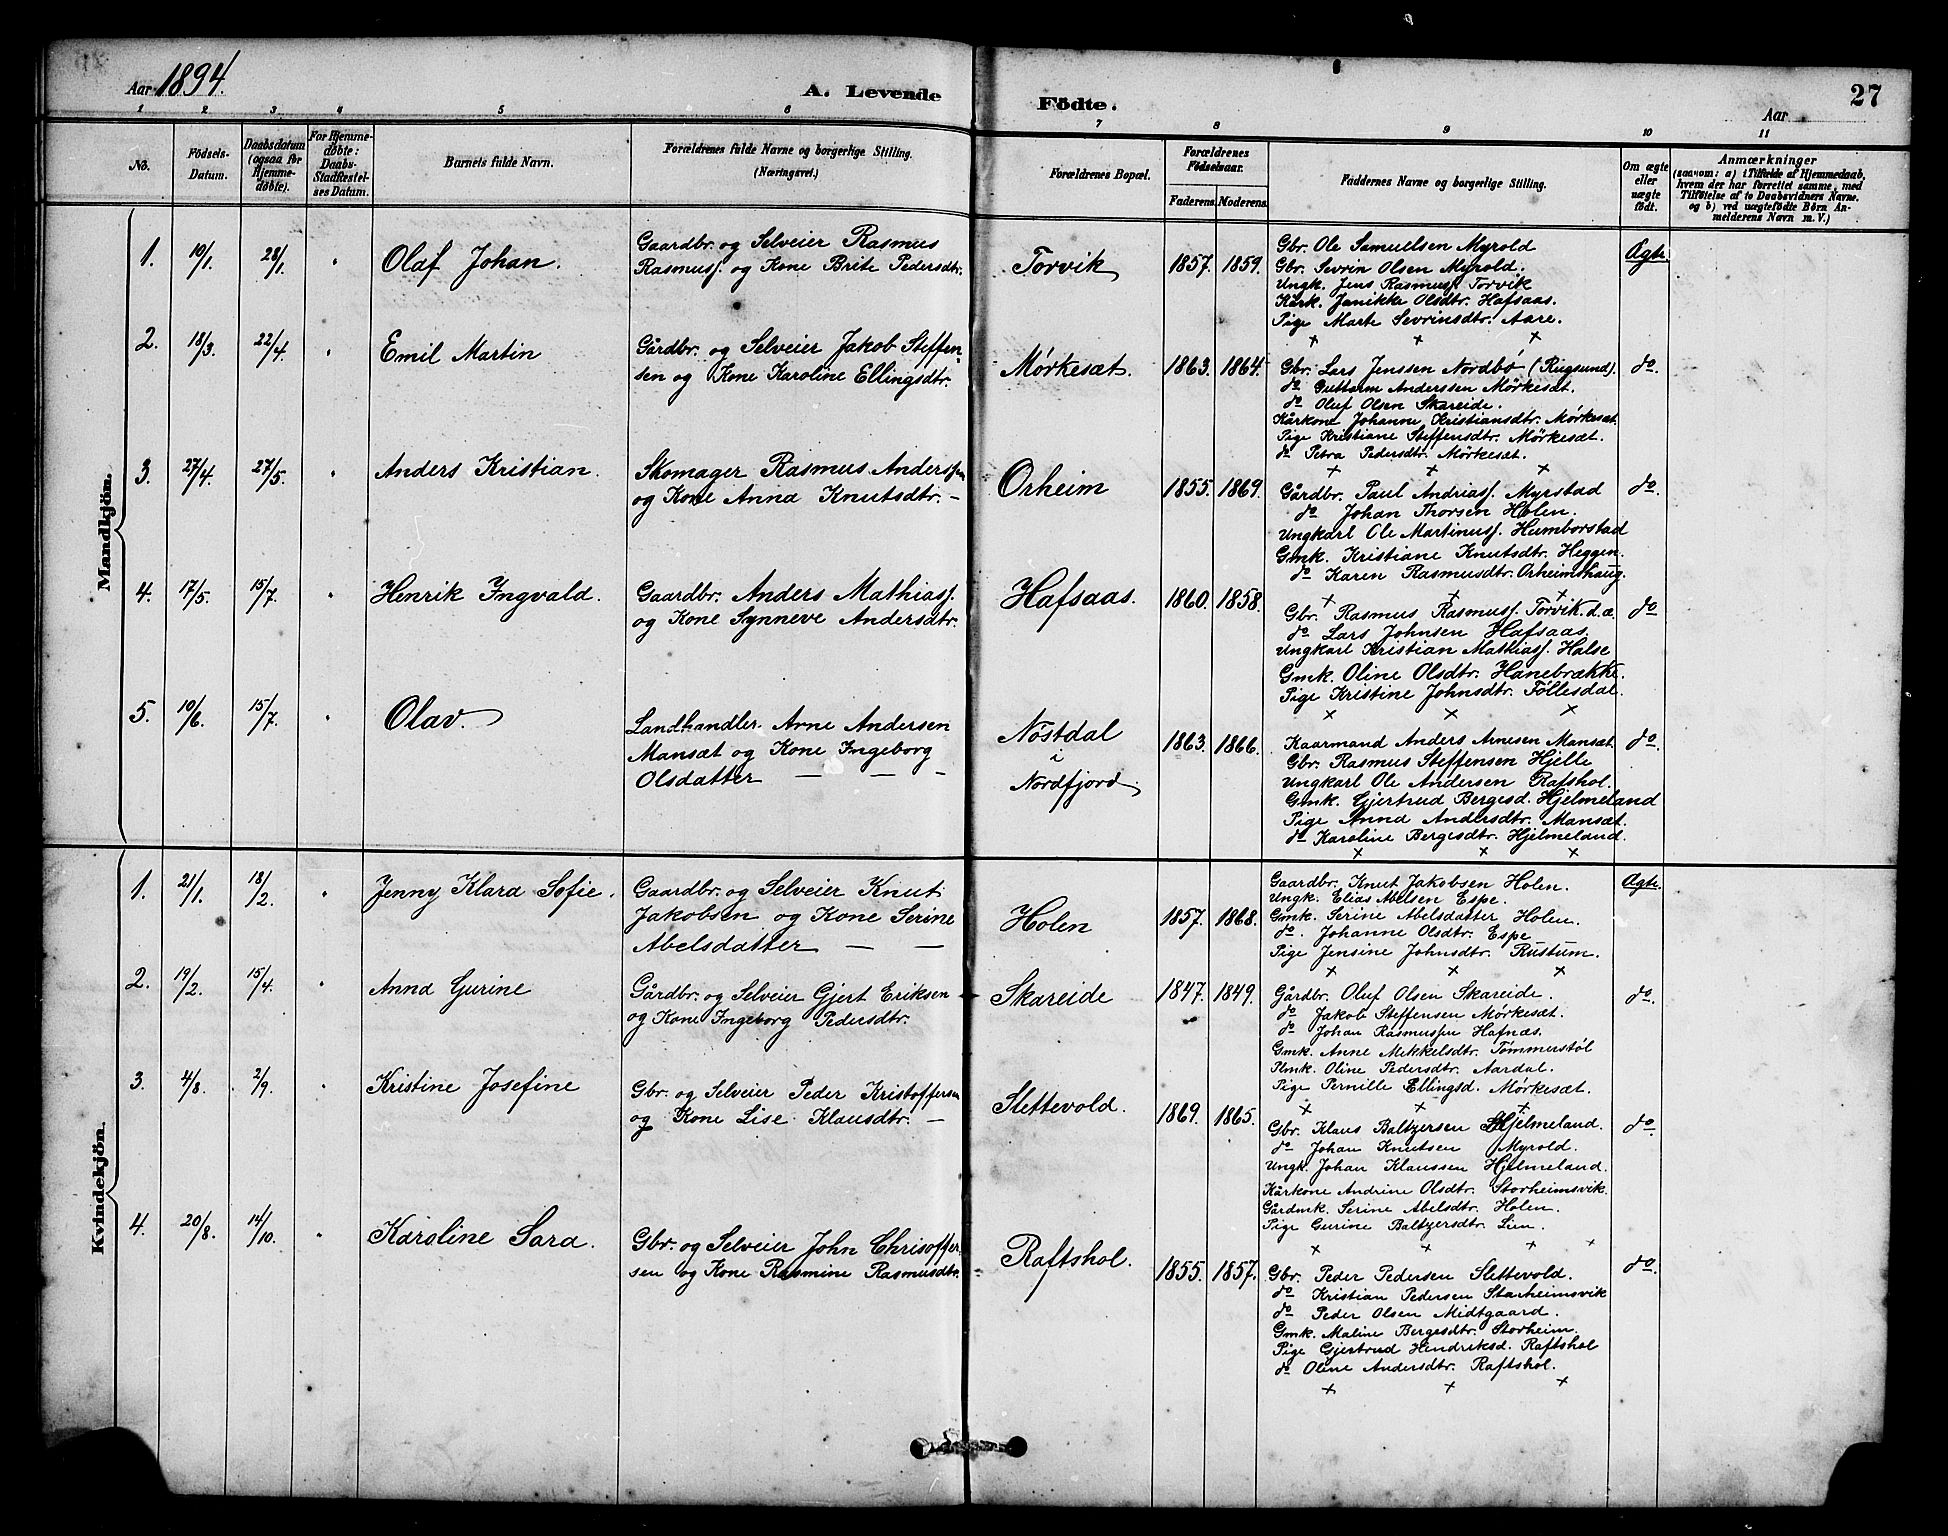 Aar 1894.
A. Levende
Födte.
Aar
27
1 2 3 4 5 6 7 8 9 10 11
No.
Födsels-Datum.
Daabsdatum (ogsaa for Hjemmedöbte).
For Hjemmedöbte: Daabs-Stadfæstelses Datum.
Barnets fulde Navn.
Forældrenes fulde Navne og borgerlige Stilling. (Næringsvei.)
Forældrenes Bopæl.
Forældrenes Födselsaar.
Faderens. Moderens.
Faddernes Navne og borgerlige Stilling.
Om ægte eller uægte födt.
Anmærkninger
(saasom: a) i Tilfælde af Hjemmedaab, hvem der har forrettet samme, med Tilföielse af to Daabsvidners Navne. og b) ved uægtefödte Börn Anmelderens Navn m. V.)
Mandkjön.
1. 10/1. 28/1. " Olaf Johan.
Gaardbr. og Selveier Rasmus
Rasmuss. og Kone Brite Pedersdtr.
Torvik 1857. 1859.
Gbr. Ole Samuelsen Myrold
Gbr. Sevrin Olsen Myrold.
Ungk. Jens Rasmuss. Torvik
Kårk. Janikke Olsdtr. Hafsaas.
Pige Marte Sevrinsdtr. Aare.
Ægte.
2. 18/3. 22/4. " Emil Martin
Gårdbr. og Selveier Jakob Steffen-
sen og Kone Karoline Ellingsdtr.
Mørkesæt. 1863. 1864.
Gbr. Lars Jenssen Nordbö (Rugsund).
do Guttorm Anderssen Mörkesæt.
do Oluf Olsen Skareide.
Kårkone Johanne Kristiansdtr. Mörkesæt.
Pige Kristiane Steffensdtr. Mörkesæt.
do Petra Pedersdtr. Mörkesæt.
do.
3. 27/4. 27/5. " Anders Kristian.
Skomager Rasmus Anderssen
og Kone Anna Knutsdtr. —
Orheim 1855. 1869.
Gårdbr. Paul Andriass. Myrstad
do Johan Thorsen Holen.
Ungkarl Ole Martinuss. Humborstad
Gmk. Kristiane Knutsdtr. Heggen.
do Karen Rasmusdtr. Orheimshaug.
do.
4. 17/5. 15/7. " Henrik Ingvald.
Gaardbr. Anders Mathiass.
og Kone Synneve Andersdtr.
Hafsaas. 1860. 1858.
Gbr. Rasmus Rasmuss. Torvik. d.æ.
do Lars Johnsen Hafsaas.
Ungkarl Kristian Mathiass. Halse
Gmk. Oline Olsdtr. Hanebrække.
Pige Kristine Johnsdtr. Föllesdal.
do
5. 10/6. 15/7. " Olav.
Landhandler. Arne Andersen
Mansæt og Kone Ingeborg
Olsdatter — — -
Nöstdal
i
Nordfjord. 1863. 1866.
Kaarmand Anders Arnesen Mansæt.
Gbr. Rasmus Steffensen Hjelle
Ungkarl Ole Andersen Rafshol.
Gmk. Gjertrud Bergesd. Hjelmeland
Pige Anna Andersdtr. Mansæt.
do Karoline Bergesdtr. Hjelmeland.
do.
Kvindekjön.
1. 21/1. 18/2. " Jenny Klara Sofie.
Gaardbr. og Selveier Knut
Jakobsen og Kone Serine
Abelsdatter — —
Holen 1857. 1868.
Gaardbr. Knut Jakobsen Holen.
Ungk. Elias Abelsen Espe.
Gmk. Serine Abelsdatter Holen.
do. Johanne Olsdtr. Espe
Pige Jensine Johnsdtr. Rustum.
Ægte.
2. 19/2. 15/4. " Anna Gurine
Gårdbr. og Selveier Gjert Eriksen
og Kone Ingeborg Pedersdtr.
Skareide 1847. 1849.
Gårdbr. Oluf Olsen Skareide.
do Jakob Steffensen Mörkesæt.
do Johan Rasmussen Hafnæs.
Gmk. Anne Mekkelsdtr. Tömmerstöl
Plmk. Oline Pedersdtr. Aardal.
Pige Pernille Ellingsd. Mörkesæt.
do.
3. 4/8. 2/9. " Kristine Josefine
Gbr. og Selveier Peder Kristoffersen
og Kone Lise Klausdtr. —
Slettevold. 1869. 1865.
Gbr. Klaus Baltzersen Hjelmeland.
do Johan Knutsen Myrold.
Ungk. Johan Klaussen Hjelmeland.
Kårkone Andrine Olsdtr. Storheimsvik.
Gårdmk. Serine Abelsdtr. Holen.
Pige Gurine Baltzersdtr. Lun.
do.
4. 20/8. 14/10. " Karoline Sara.
Gbr. og Selveier John Chrisoffer-
sen og Kone Rasmine Rasmusdtr.
Raftshol. 1855. 1857.
Gbr. Peder Pedersen Slettevold.
do Kristian Pedersen Starheimsvik
do Peder Olsen Midtgaard.
Gmk. Maline Bergesdtr. Storheim.
Pige Gjertrud Hendriksd. Raftshol
do Oline Andersdtr. Raftshol.
do.